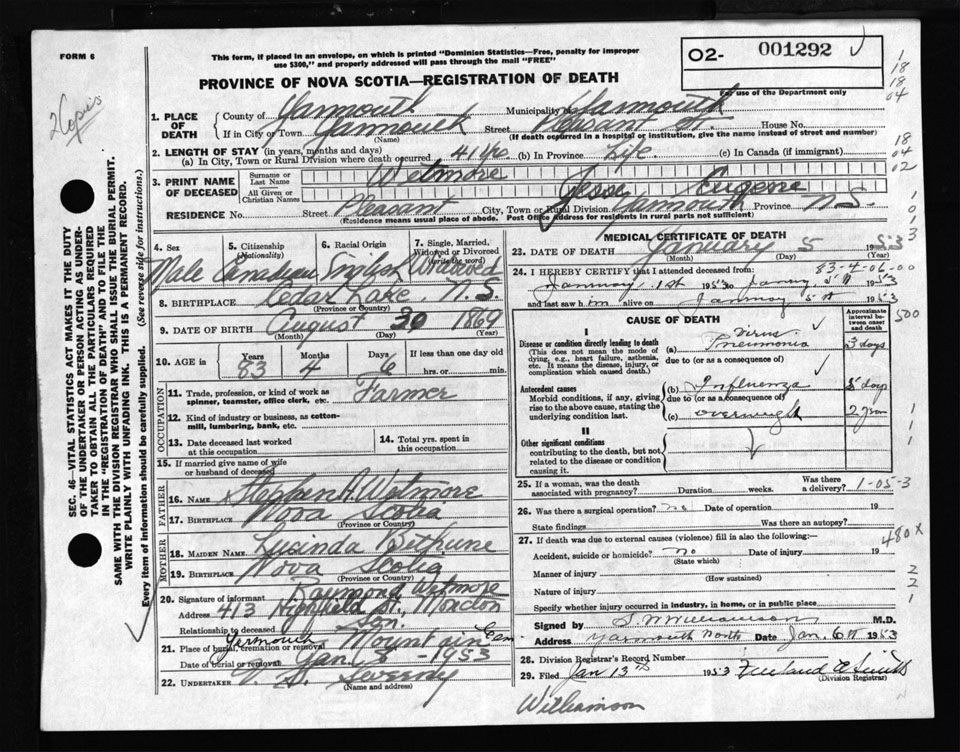 FORM 6
This form, if placed in an envelope, on which is printed "Dominion Statistics—Free, penalty for improper
use $300," and properly addressed will pass through the mail "FREE"
O2- 001292
For use of the Department only
PROVINCE OF NOVA SCOTIA—REGISTRATION OF DEATH
2 Copies
1. PLACE OF DEATH
County of Yarmouth Municipality of Yarmouth
If in City or Town Yarmouth Street Pleasant St. House No.
(Name) (If death occurred in a hospital or institution, give the name instead of street and number)
2. LENGTH OF STAY (in years, months and days)
(a) In City, Town or Rural Division where death occurred 41 yrs. (b) In Province Life. (c) In Canada (if immigrant)
3. PRINT NAME OF DECEASED
Surname or Last Name Wetmore
All Given or Christian Names Jesse Eugene
RESIDENCE No. Street Pleasant City, Town or Rural Division Yarmouth Province N.S.
(Residence means usual place of abode. Post Office address for residents in rural parts not sufficient)
4. Sex Male
5. Citizenship (Nationality) Canadian
6. Racial Origin English
7. Single, Married, Widowed or Divorced (write the word) Widowed
8. BIRTHPLACE Cedar Lake, N.S.
(Province or Country)
9. DATE OF BIRTH August 30 1869
(Month) (Day) (Year)
10. AGE in Years 83 Months 4 Days 6 If less than one day old hrs. or min.
OCCUPATION
11. Trade, profession, or kind of work as spinner, teamster, office clerk, etc. Farmer
12. Kind of industry or business, as cotton-mill, lumbering, bank, etc.
13. Date deceased last worked at this occupation
14. Total yrs. spent in this occupation
15. If married give name of wife or husband of deceased
FATHER
16. NAME Stephen A. Wetmore
17. BIRTHPLACE Nova Scotia
(Province or Country)
MOTHER
18. MAIDEN NAME Lucinda Bethune
19. BIRTHPLACE Nova Scotia
(Province or Country)
20. Signature of informant Raymond Wetmore
Address 413 Highfield St., Moncton
Relationship to deceased Son.
21. Place of burial, cremation or removal Yarmouth Mountain Cem
Date of burial or removal Jan. 8 - 1953
22. UNDERTAKER V. S. Sweeny
(Name and address)
MEDICAL CERTIFICATE OF DEATH
23. DATE OF DEATH January 5 1953
(Month) (Day) (Year)
83-4-06-00
24. I HEREBY CERTIFY that I attended deceased from:
January 1st 1953 to January 5th 1953
and last saw him alive on January 5th 1953
CAUSE OF DEATH
Approximate interval between onset and death
I
Disease or condition directly leading to death
(This does not mean the mode of dying, e.g., heart failure, asthenia, etc. It means the disease, injury, or complication which caused death.)
(a) Virus Pneumonia 3 days
due to (or as a consequence of)
Antecedent causes
Morbid conditions, if any, giving rise to the above cause, stating the underlying condition last.
(b) Influenza 5 days
due to (or as a consequence of)
(c) overweight
II
Other significant conditions
contributing to the death, but not related to the disease or condition causing it.
25. If a woman, was the death associated with pregnancy? Duration weeks. Was there a delivery?
1-05-3
26. Was there a surgical operation? no Date of operation 19
State findings Was there an autopsy?
27. If death was due to external causes (violence) fill in also the following:—
480 X
Accident, suicide or homicide? no Date of injury 19
(State which)
Manner of injury
(How sustained)
Nature of injury
Specify whether injury occurred in industry, in home, or in public place
Signed by S. W. Williamson M.D.
Address Yarmouth North Date Jan. 6th 1953
28. Division Registrar's Record Number
29. Filed Jan 13th 1953 Freeland A Smith
(Division Registrar)
Williamson
SEC. 46—VITAL STATISTICS ACT MAKES IT THE DUTY
OF THE UNDERTAKER OR PERSON ACTING AS UNDER-
TAKER TO OBTAIN ALL THE PARTICULARS REQUIRED
IN THE "REGISTRATION OF DEATH" AND TO FILE THE
SAME WITH THE DIVISION REGISTRAR WHO SHALL ISSUE THE BURIAL PERMIT.
WRITE PLAINLY WITH UNFADING INK. THIS IS A PERMANENT RECORD.
Every item of information should be carefully supplied. (See reverse side for instructions.)
1
18
18
04
18
04
02
0
1
3
500
1
1
1
2
2
1